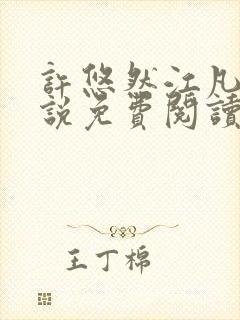 許悠然江凡
說免費閱讀
王丁棉